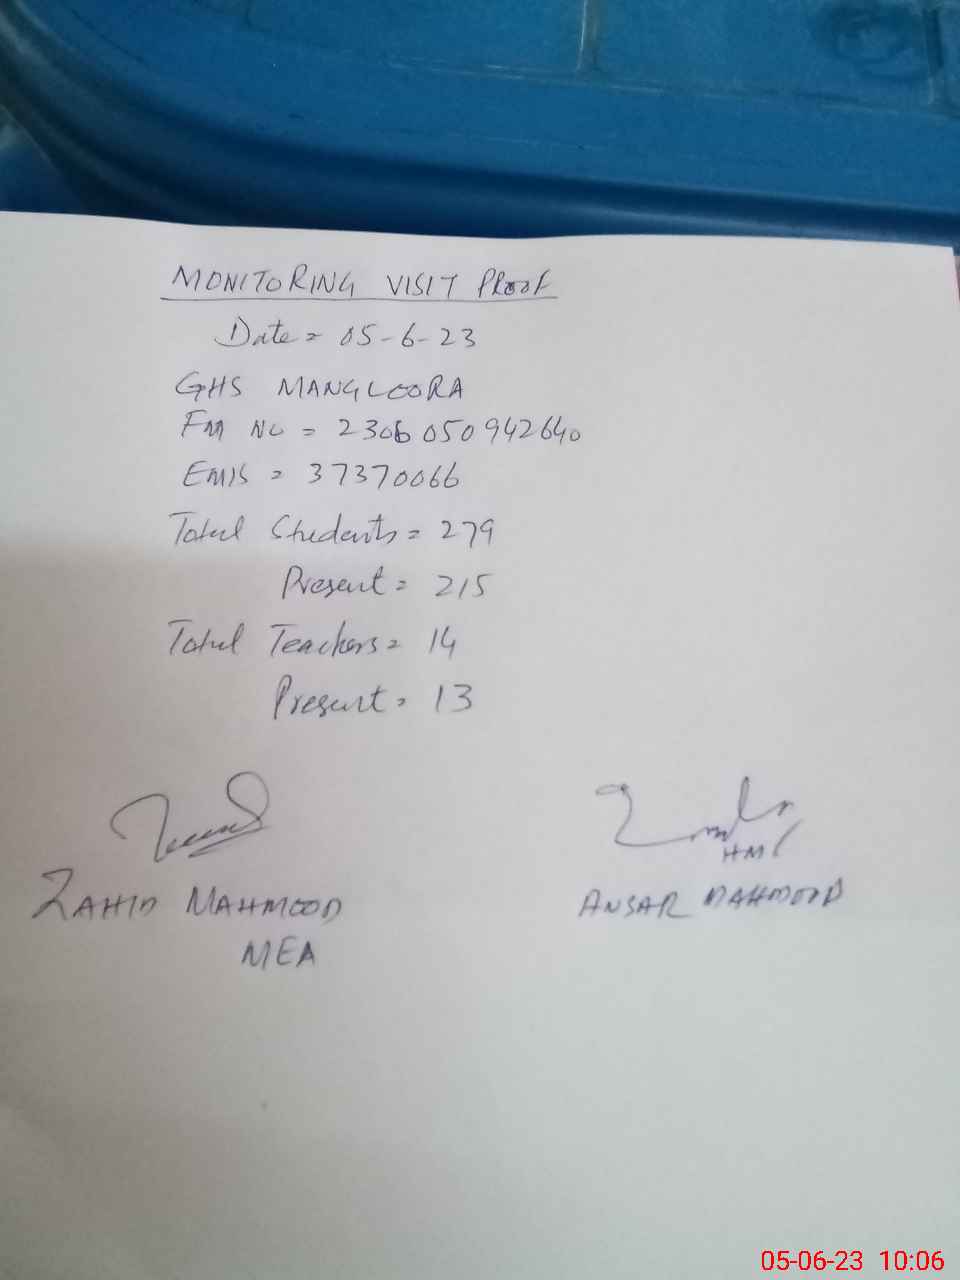 MONITORING VISIT PROOF
Date = 05-6-23
GHS MANGLOORA
FM NO = 2306050942640
EMIS = 37370066
Total Students = 279
Present = 215
Total Teachers = 14
Present = 13
HM
ZAHID MAHMOOD
ANSAR MAHMOOD
MEA
05-06-23 10:06